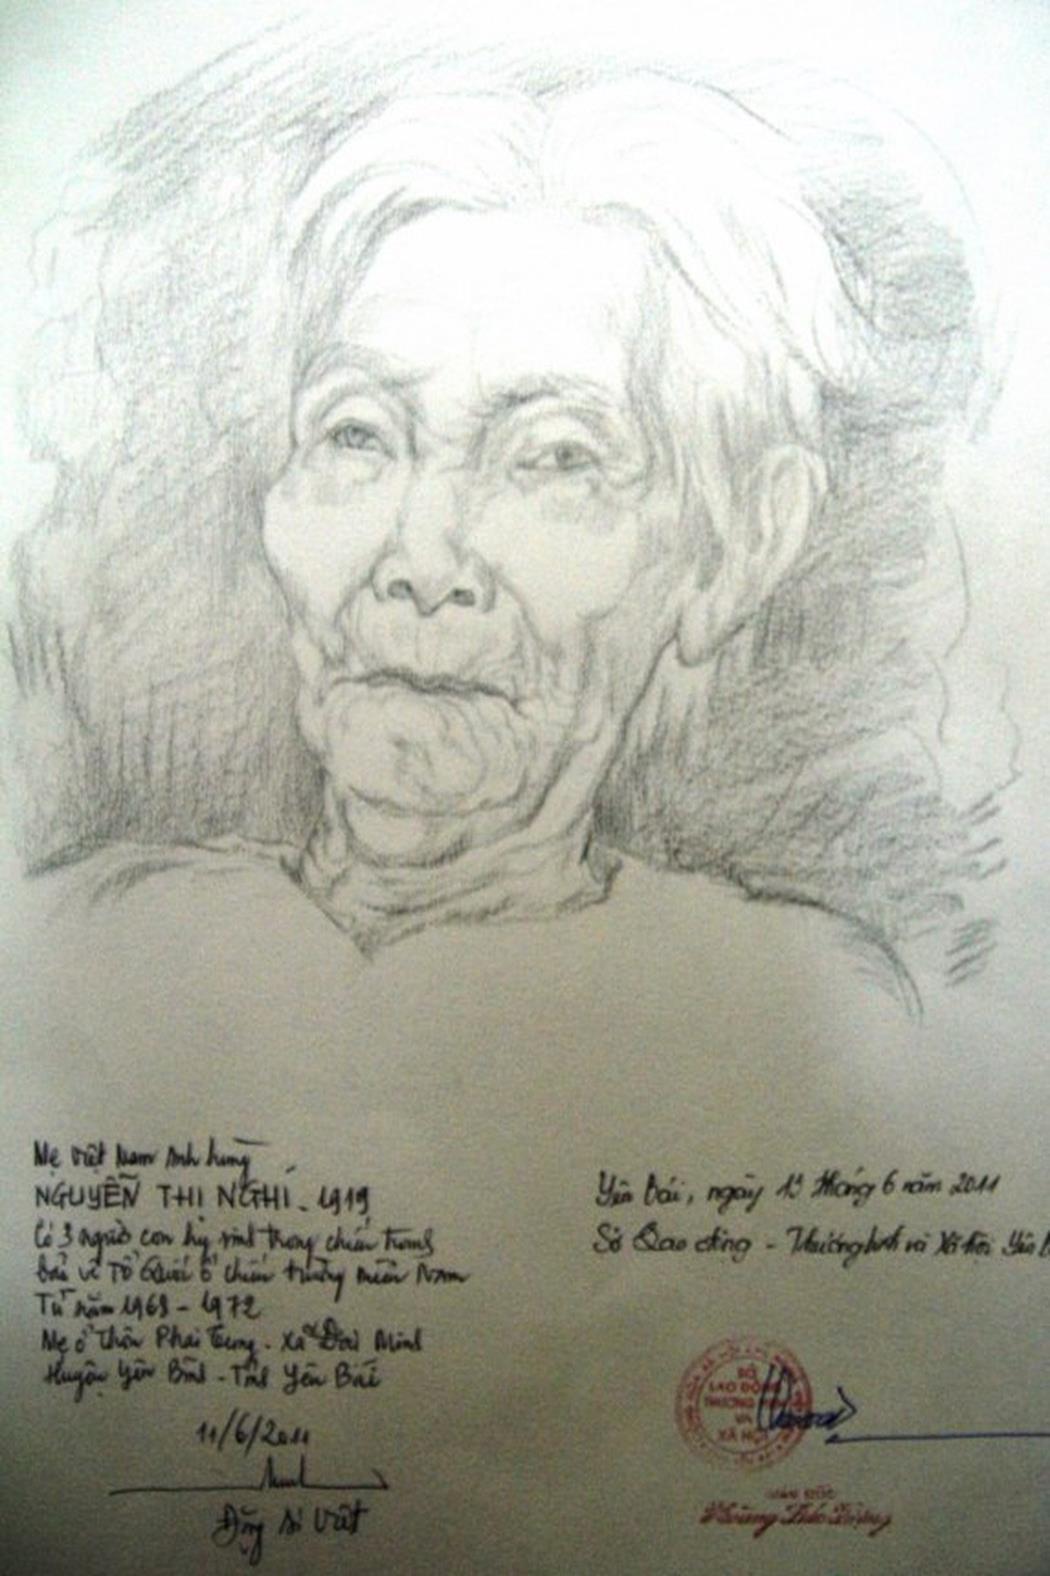 Mẹ Việt Nam Anh hùng
NGUYỄN THỊ NGHÍ - 1919
Có 3 người con hy sinh trong chiến tranh
bảo vệ Tổ Quốc ở chiến trường miền Nam
Từ năm 1968 - 1972
Mẹ ở Thôn Phai Tung - Xã Đại Minh
Huyện Yên Bình - Tỉnh Yên Bái
11/6/2011
Đặng Ái Việt
Yên Bái, ngày 13 tháng 6 năm 2011
Sở Lao động - Thương binh và Xã hội Yên
SỞ
LAO ĐỘNG
THƯƠNG BINH
VÀ
XÃ HỘI
GIÁM ĐỐC